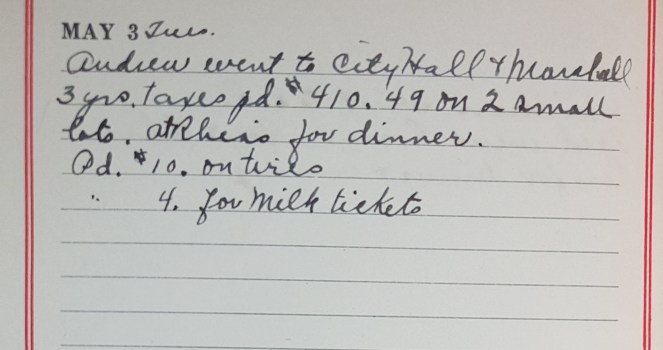 MAY 3 Tues.
Andrew went to City Hall & Marshall
3 yrs. taxes pd. $410.49 on 2 small
lots. at Rheas for dinner.
Pd. $10. on tires
" 4. for milk tickets